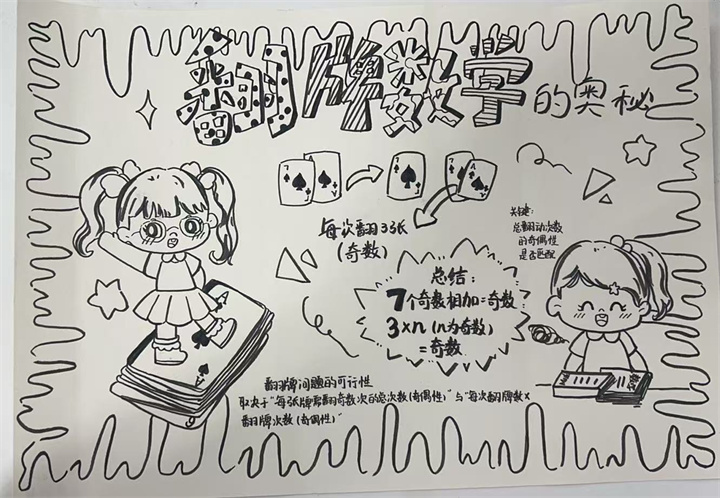 翻牌数学的奥秘
每次翻3张
(奇数)
关键:
总翻动次数
的奇偶性
是否匹配
总结:
7个奇数相加=奇数
3×n(n为奇数)
=奇数
翻牌问题的可行性
取决于"每张牌需翻奇数次的总次数(奇偶性)"与"每次翻牌数×
翻牌次数(奇偶性)"